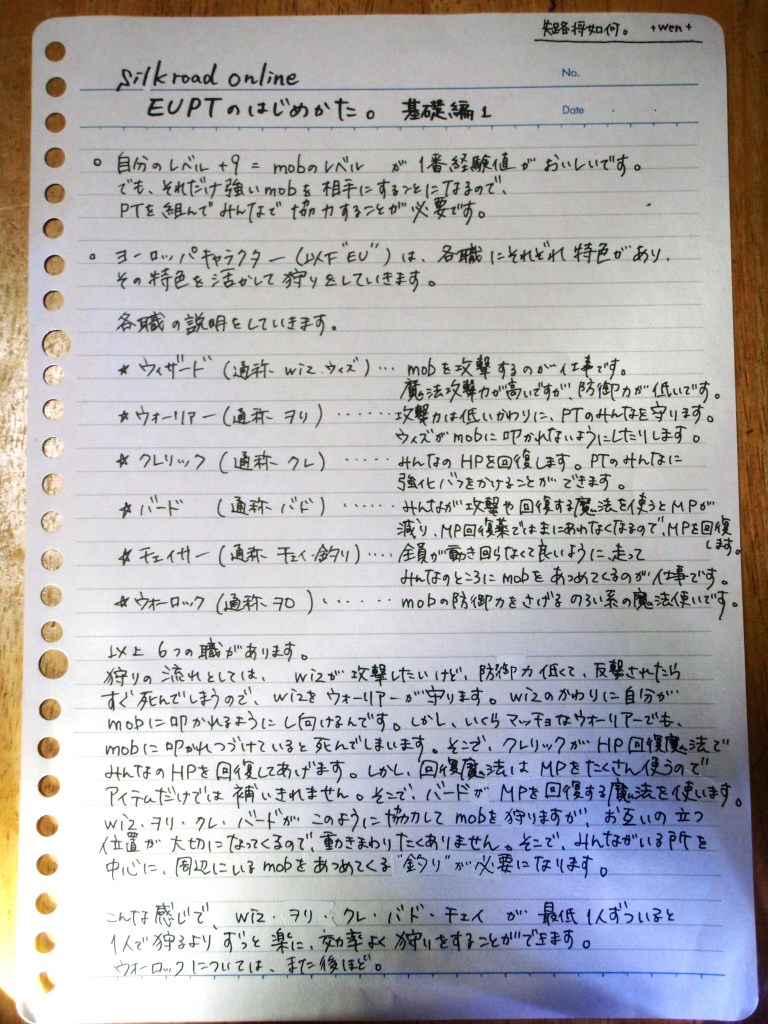 失路将如何。 +wen+
silkroad online
No.
EUPTのはじめかた。 基礎編1
Date ・ ・
○ 自分のレベル+9 = mobのレベル が 1番経験値がおいしいです。
でも、それだけ強いmobを相手にすることになるので、
PTを組んでみんなで協力することが必要です。
○ ヨーロッパキャラクター(以下"EU")は、各職にそれぞれ特色があり、
その特色を活かして狩りをしていきます。
各職の説明をしていきます。
★ ウィザード (通称 wiz.ウィズ)… mobを攻撃するのが仕事です。
魔法攻撃力が高いですが、防御力が低いです。
★ウォーリアー (通称 ヲリ) ・・・・・・攻撃力は低いかわりに、PTのみんなを守ります。
ウィズがmobに叩かれないようにしたりします。
★ クレリック (通称 クレ) ・・・・・ みんなのHPを回復します。PTのみんなに
強化バフをかけることができます。
★ バード (通称 バド) ・・・・・・みんなが攻撃や回復する魔法を使うとMPが
減り、MP回復薬ではまにあわなくなるので、MPを回復
します。
★チェイサー (通称 チェイ・釣り)・・・・全員が動き回らなくて良いように、走って
みんなのところにmobをあつめてくるのが仕事です。
★ウォーロック (通称 ヲロ) ・・・・・・ mobの防御力をさげる のろい系の魔法使いです。
以上 6つの職があります。
狩りの流れとしては、 wizが攻撃したいけど、防御力低くて、反撃されたら
すぐ死んでしまうので、wizをウォーリアーが守ります。wizのかわりに自分が
mobに叩かれるようにし向けるんです。しかし、いくらマッチョなウォーリアーでも、
mobに叩かれつづけていると死んでしまいます。そこで、クレリックがHP回復魔法で
みんなのHPを回復してあげます。しかし、回復魔法はMPをたくさん使うので
アイテムだけでは補いきれません。そこで、バードがMPを回復する魔法を使います。
wiz・ヲリ・クレ・バードがこのように協力してmobを狩りますが、お互いの立つ
位置が大切になってくるので、動きまわりたくありません。そこで、みんながいる所を
中心に、周辺にいるmobをあつめてくる"釣り"が必要になります。
こんな感じで、wiz・ヲリ・クレ・バド・チェイ が 最低1人ずついると
1人で狩るよりずっと楽に、効率よく狩りをすることができます。
ウォーロックについては、また後ほど。